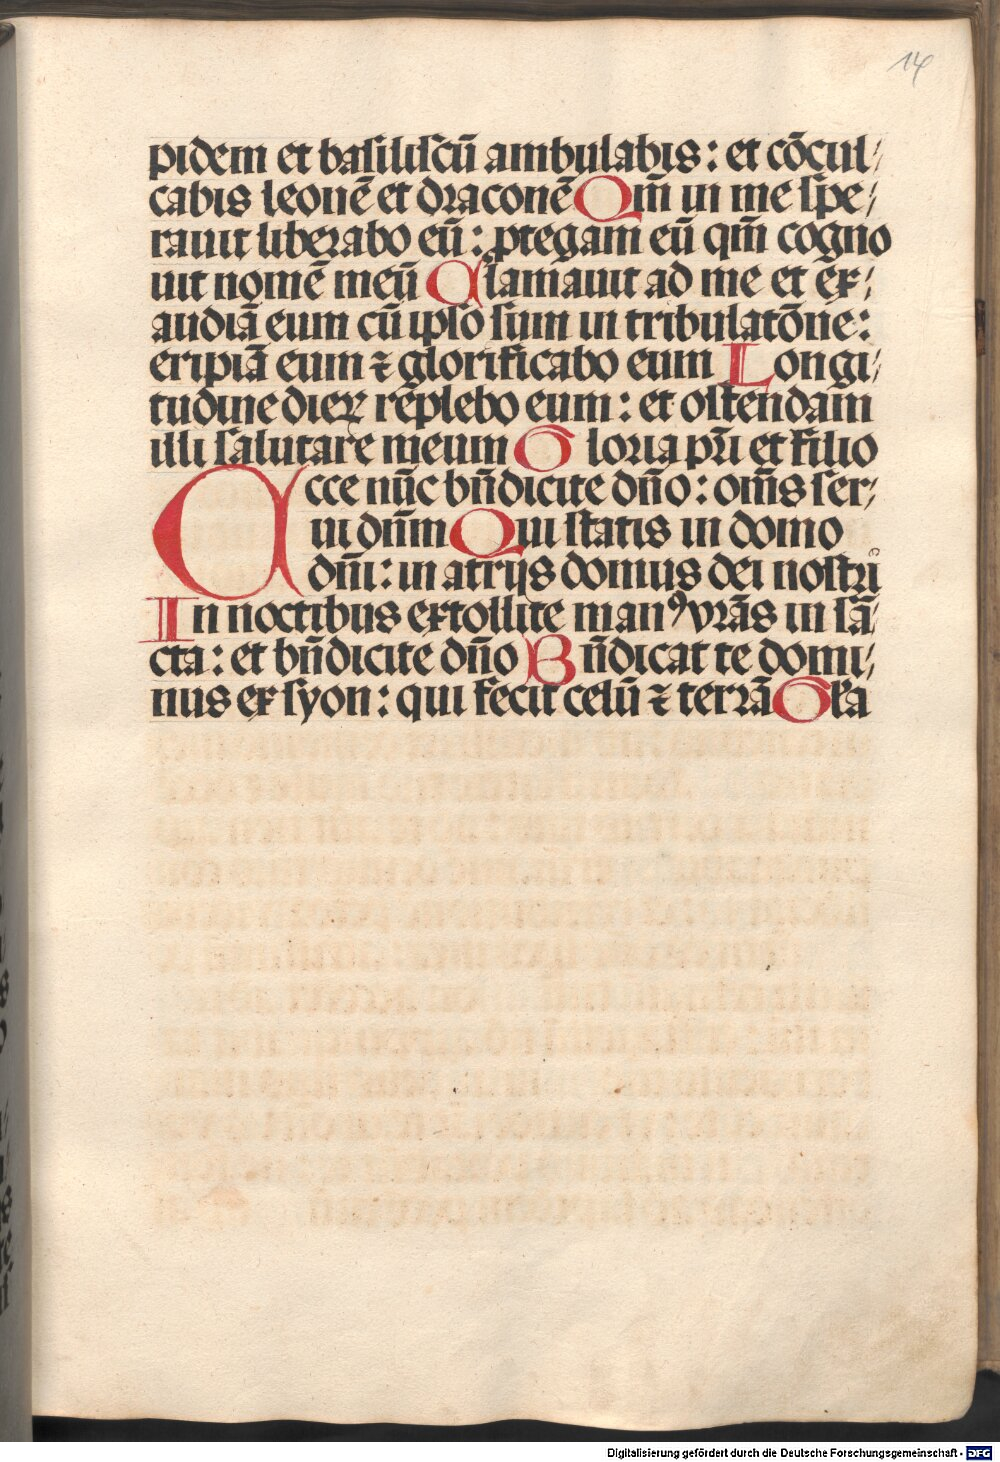 14
pidem et basiliscū ambulabis : et cōcul-
cabis leonē et draconē Qm̄ in me spe-
rauit liberabo eū : ꝓtegam eū qm̄ cogno
uit nomē meū Clamauit ad me et ex-
audiā eum cū ipso sum in tribulatōne :
eripiā eum ⁊ glorificabo eum Longi-
tudine dieꝝ replebo eum : et ostendam
illi salutare meum Gloria pr̄i et filio
Ecce nūc bn̄dicite dn̄o : om̄s ser-
ui dn̄m Qui statis in domo
dn̄i : in atrijs domus dei nostri
In noctibus extollite manꝰ vr̄as in sā-
cta : et bn̄dicite dn̄o Bn̄dicat te domi-
nus ex syon : qui fecit celū ⁊ terrā Gl'a
Digitalisierung gefördert durch die Deutsche Forschungsgemeinschaft - DFG